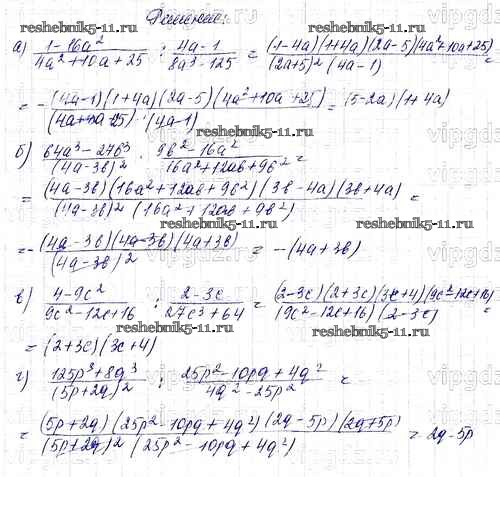 Решение:
reshebnik5-11.ru reshebnik5-11.ru
а) (1-16a²)/(4a²+10a+25) : (4a-1)/(8a³-125) = ((1-4a)(1+4a)(2a-5)(4a²+10a+25))/((2a+5)²(4a-1)) =
= -((4a-1)(1+4a)(2a-5)(4a²+10a+25))/( (4a-1)) = (5-2a)(1+4a)
reshebnik5-11.ru
б) (64a³-27b³)/((4a-3b)²) : (9b²-16a²)/(16a²+12ab+9b²) =
= ((4a-3b)(16a²+12ab+9b²)(3b-4a)(3b+4a))/((4a-3b)²(16a²+12ab+9b²)) =
reshebnik5-11.ru
= -((4a-3b)(4a-3b)(4a+3b))/((4a-3b)²) = -(4a+3b)
reshebnik5-11.ru
в) (4-9c²)/(9c²-12c+16) : (2-3c)/(27c³+64) = ((2-3c)(2+3c)(3c+4)(9c²-12c+16))/((9c²-12c+16)(2-3c)) =
reshebnik5-11.ru
= (2+3c)(3c+4)
г) (125p³+8q³)/((5p+2q)²) : (25p²-10pq+4q²)/(4q²-25p²) =
reshebnik5-11.ru
= ((5p+2q)(25p²-10pq+4q²)(2q-5p)(2q+5p))/((5p+2q)²(25p²-10pq+4q²)) = 2q-5p